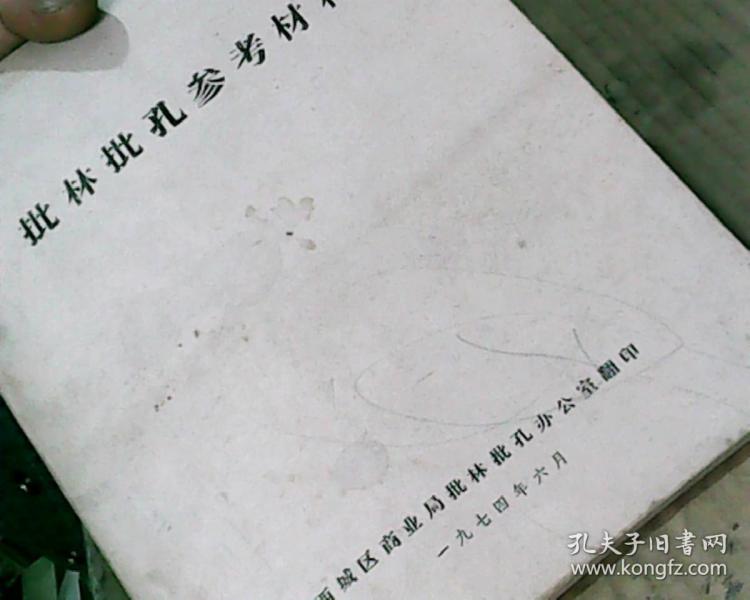 批林批孔参考材料
西城区商业局批林批孔办公室翻印
一九七四年六月
孔夫子旧書网
www.kongfz.com